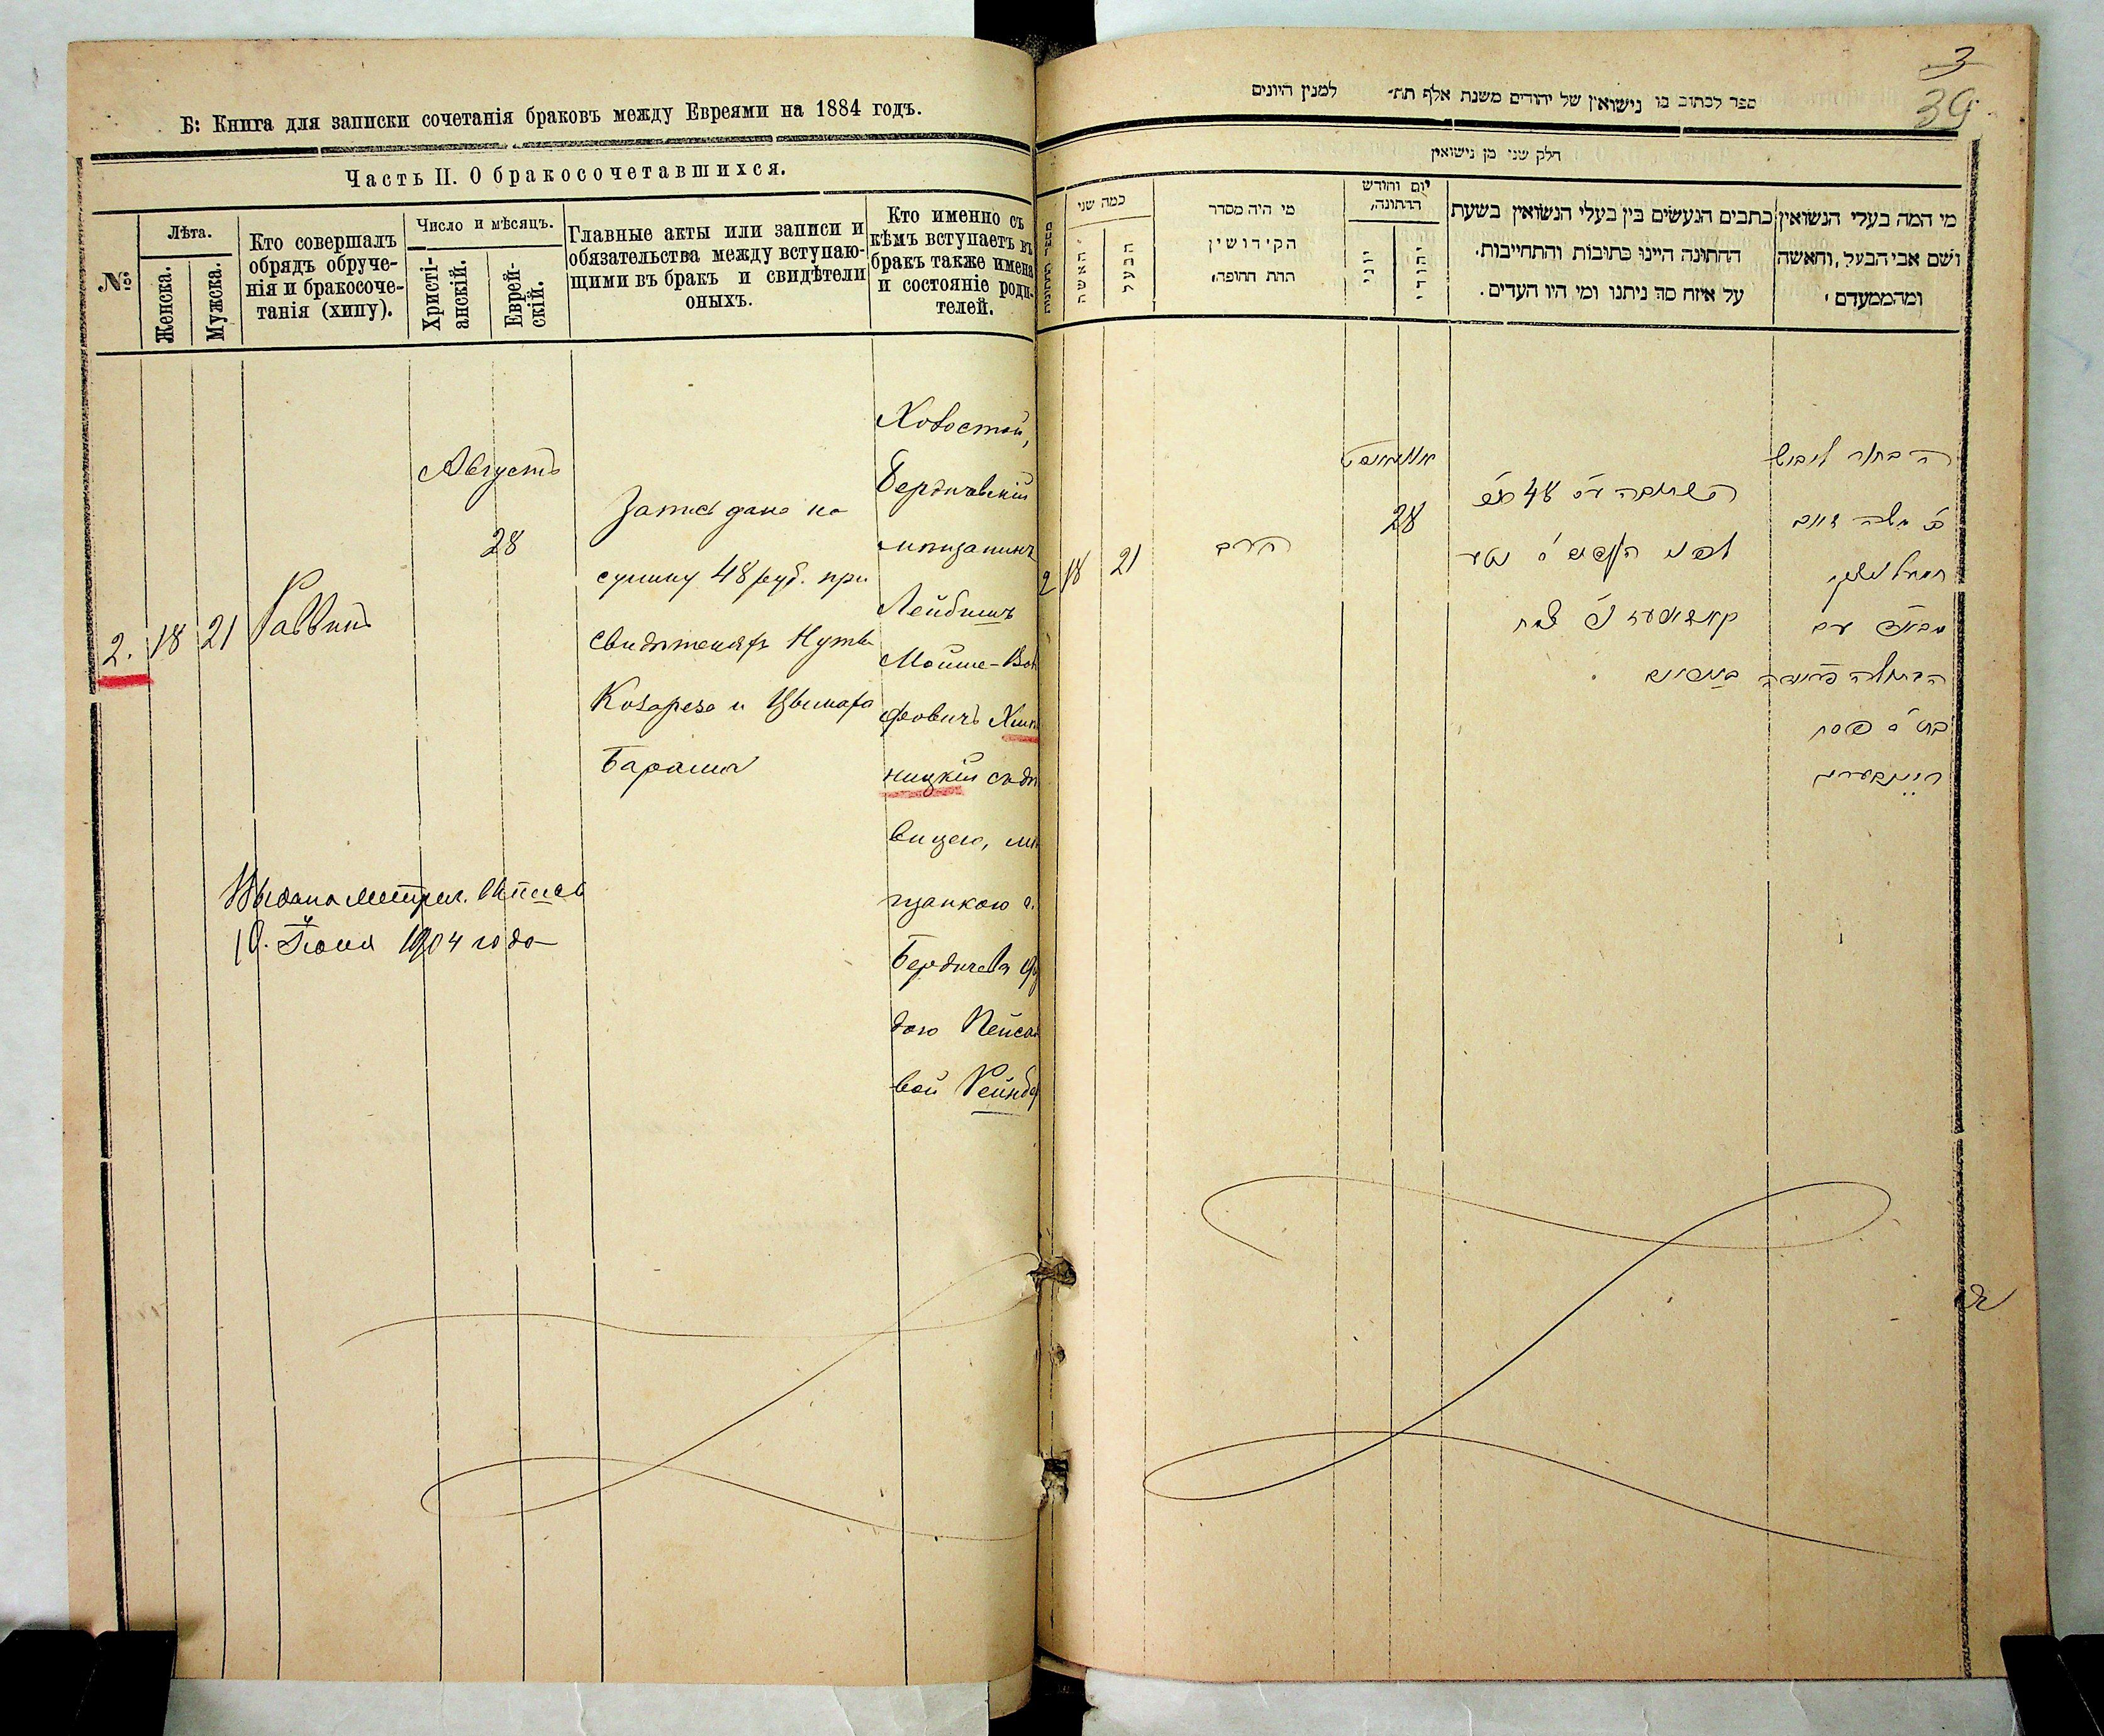 Б: Книга для записки сочетанія браковъ между Евреями на 1884 годъ.
Часть II. О бракосочетавшихся.
№:
Лѣта.
Женска.
Мужска.
Кто совершалъ
обрядъ обруче-
нія и бракосоче-
танія (хипу).
Число и мѣсяцъ.
Христі-
анскій.
Еврей-
скій.
Главные акты или записи и
обязательства между вступаю-
щими въ бракъ и свидѣтели
оныхъ.
Кто именно съ
кѣмъ вступаетъ въ
бракъ также имена
и состояніе роди-
телей.
2.
18
21
Раввинъ
Августъ
28
Запись дана на
сумму 48 руб. при
свидѣтеляхъ
Барашъ
Холостой,
Бердичевскій
мѣщанинъ
Лейбишъ
Мойше-Воль
фовичъ Хмѣль
ницкій съ дѣ
вицею, мѣ
щанкою г.
Бердичева
дою Пейсахо
вой Рейнбер
Выдана метрич. выпись
10. Іюня 1904 года
3
39
ספר לכתוב בו נישואין של יהודים משנת אלף תת־ למנין היונים
חלק שני מן נישואין
מספר החתונות
כמה שני
האשה
הבעל
מי היה מסדר
הקידושין
תחת החופה,
יום וחודש
החתונה,
יוני
יהודי
כתבים הנעשים בין בעלי הנשואין בשעת
החתונה היינו כתובות והתחייבות.
על איזה סך ניתנו ומי היו העדים.
מי המה בעלי הנשואין
ושם אבי הבעל, והאשה
ומהממעדם,
2
18
21
הרב
אווגוסט
28
הכתובה ע״ס 48 רו״כ
הבחור לייבוש
ב״ר משה וואלף
חמעלניצקי
עם
הבתולה פריידה
בת ר׳ פסח
ריינבערג